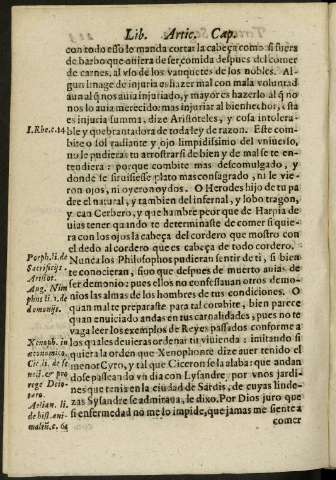 Lib. Artic. Cap.
con todo esso le manda cortar la cabeça como si fuera
de barbo que ouiera de ser comida despues del comer
de carnes, al vso de los vanquetes de los nobles. Al-
gun linage de injuria es hazer mal con mala voluntad
aun al q̃ nos auia injuriado, y mayor es hazerlo al q̃ no
nos lo auia merecido: mas injuriar al bienhechor, esta
es injuria summa, dize Aristoteles, y cosa intolera-
I.Rhe.c.14
ble y quebrantadora de toda ley de razon. Este com-
bite o sol radiante y ojo limpidissimo del vniuerso,
no le pudieras tu arrostrar si de bien y de mal se te en-
tendiera: porque combite mas descomulgado, y
donde se siruiesse plato mas consagrado, ni le vie-
ron ojos, ni oyeron oydos. O Herodes hijo de tu pa
dre el natural, y tambien del infernal, y lobo tragon,
y can Cerbero, y que hambre peor que de Harpia de
uias tener quando te determinaste de comer si quie-
ra con los ojos la cabeça del cordero que mostro con
el dedo al cordero que es cabeça de todo cordero.
Porph. li. de
Sacrificijs.
Aristot.
Aug. Nim
phus li. 1. de
demonijs.
Nunca los Philosophos pudieran sentir de ti, si bien
te conocieran, sino que despues de muerto auias de
ser demonio: pues ellos no confessauan otros demo-
nios las almas de los hombres de tus condiciones. O
quan mal te preparaste para tal combite, bien parece
quan enuiciado andas en tus carnalidades, pues no te
vaga leer los exemplos de Reyes passados conforme a
Xenoph. in
œconomico.
Cic. li. de se
nect. & pro
rege Deio-
taro.
los quales deuieras ordenar tu viuienda: imitando si
quiera la orden que Xenophonte dize auer tenido el
menor Cyro, y tal que Ciceron se la alaba: que andan
dose passeando vn dia con Lysandre por vnos jardi-
nes que tenia en la ciudad de Sardis, de cuyas linde-
Aelian. li.
de hist. ani-
maliũ. c. 64
zas Lysandre se admiraua, le dixo. Por Dios juro que
si enfermedad no me lo impide, que jamas me siente a
comer